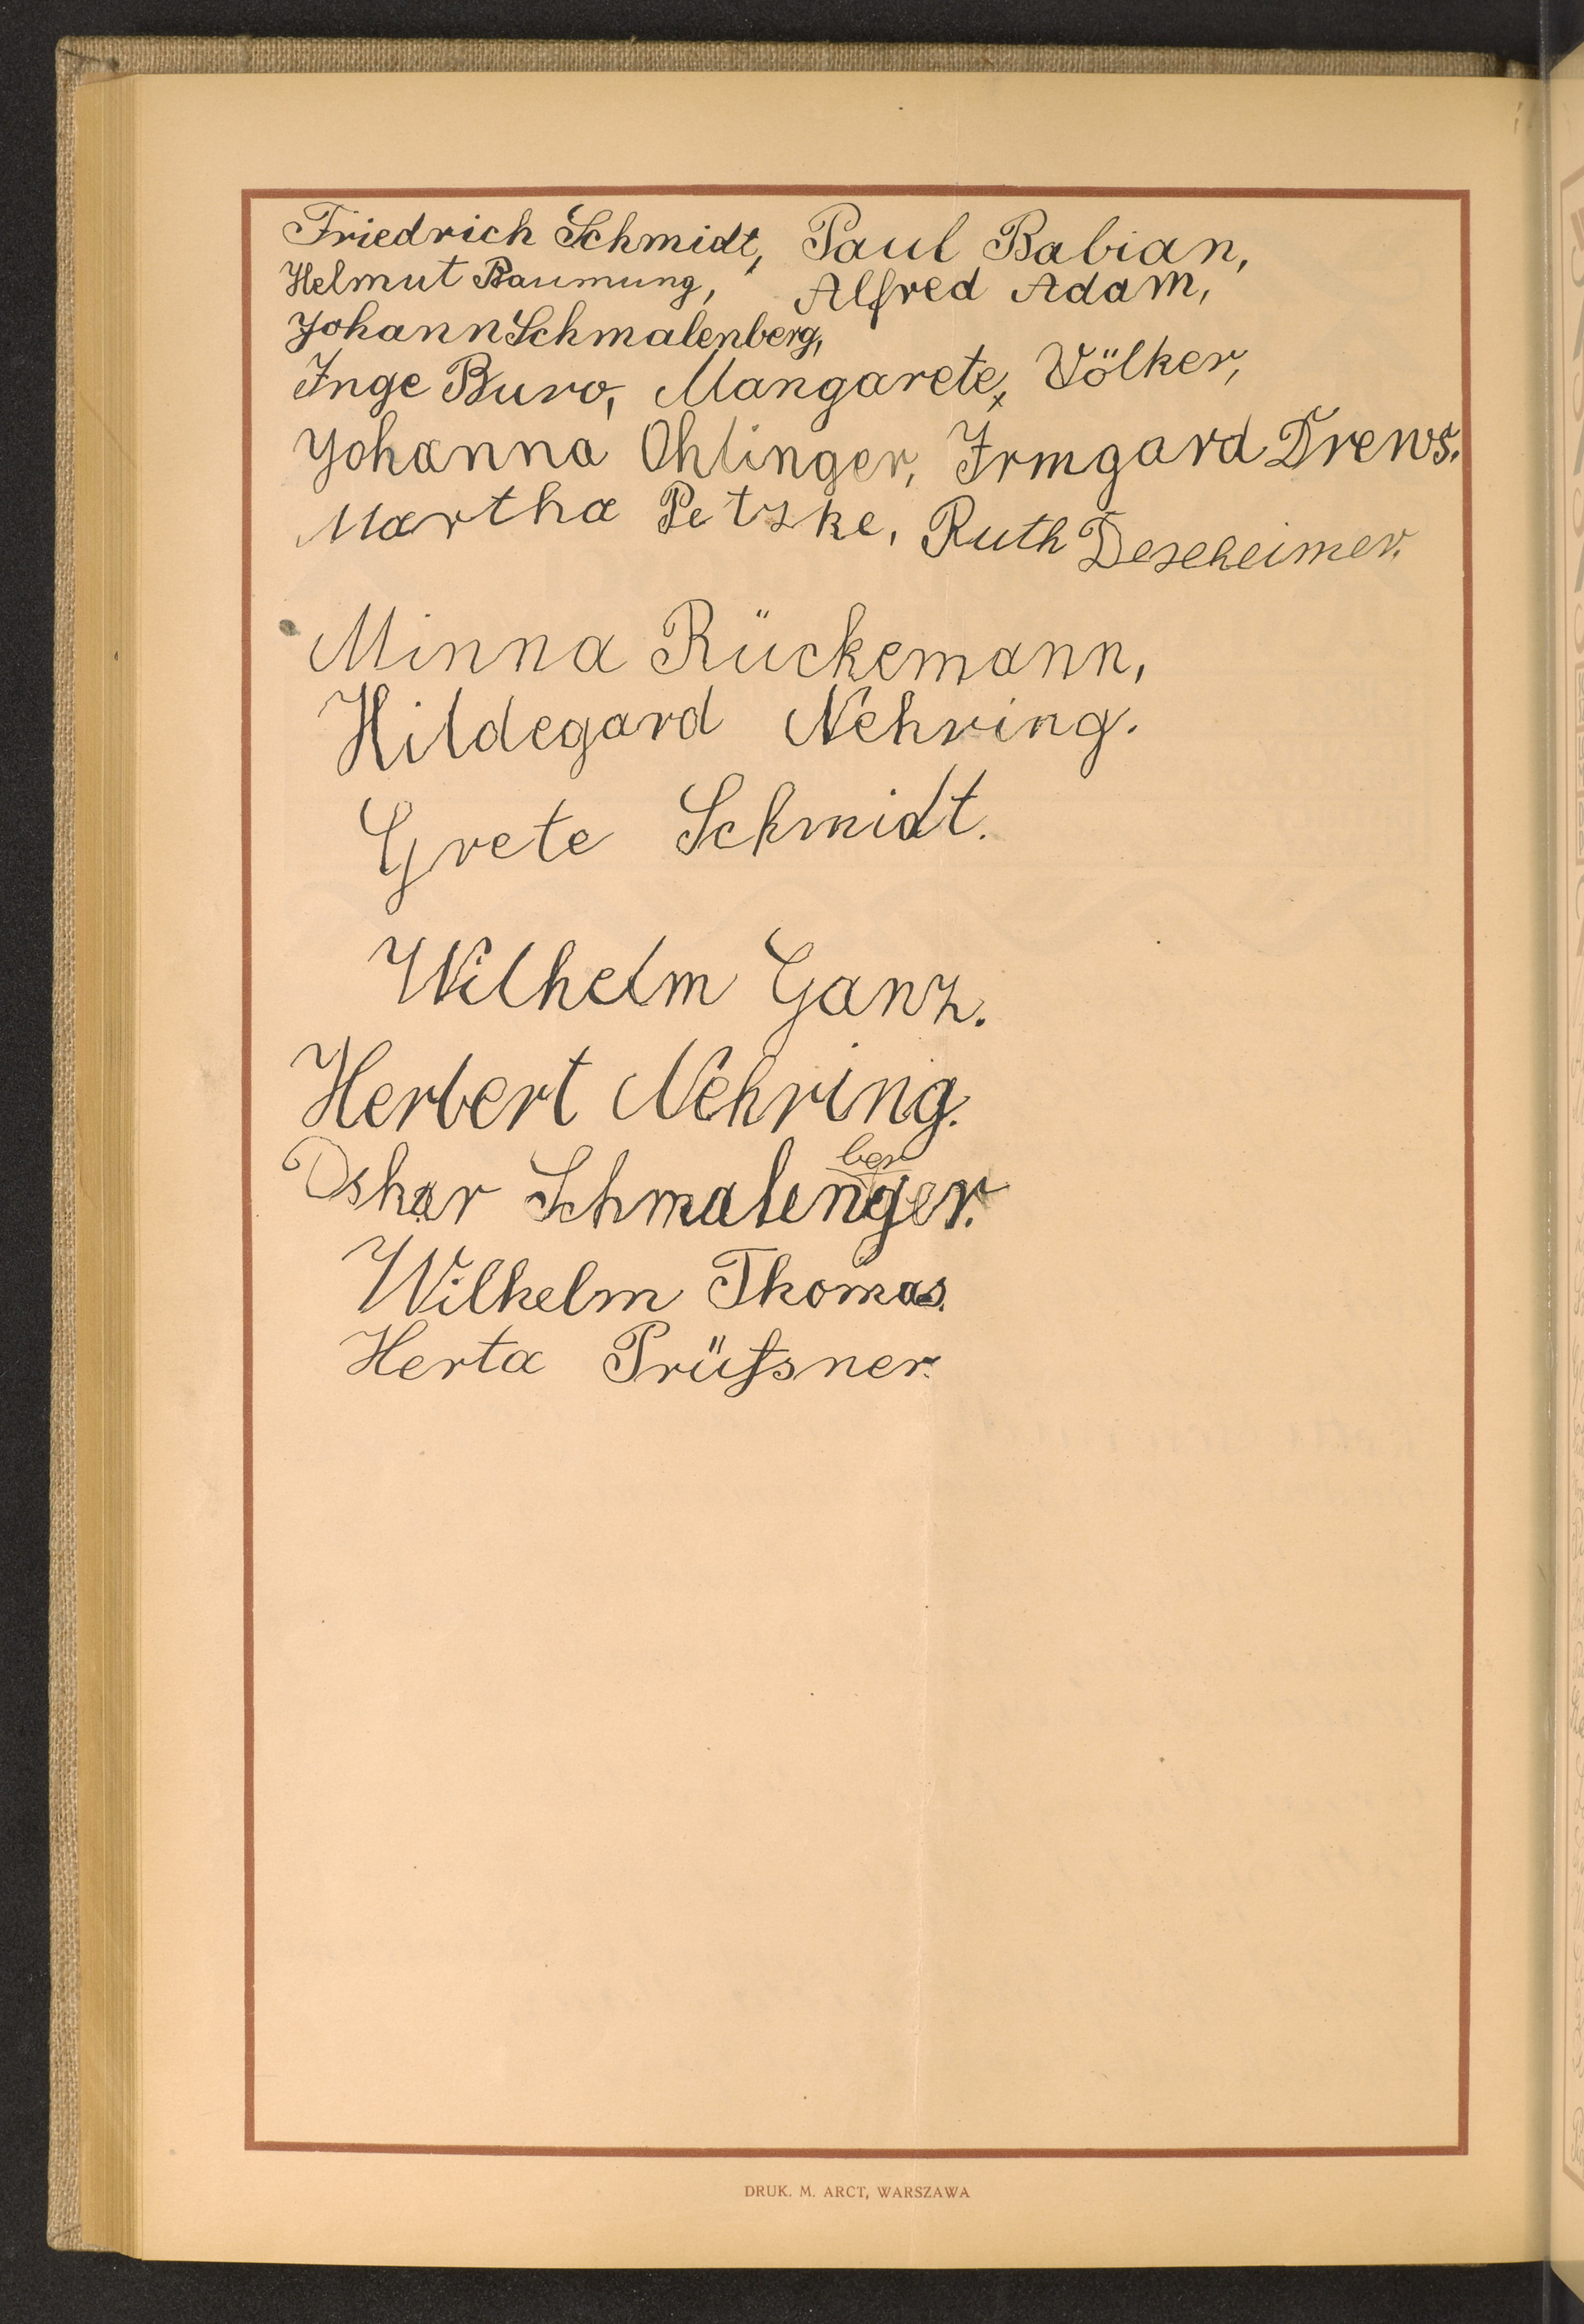 Friedrich Schmidt, Paul Babian,
Helmut Baumung, Alfred Adam,
Johann Schmalenberg,
Inge Buro, Mangarete, Völker,
Johanna Ohlinger, Irmgard Drews.
Martha Petzke, Ruth Deseheimer.
Minna Rückemann,
Hildegard Nehring.
Grete Schmidt.
Wilhelm Ganz.
Herbert Nehring.
ber
Oskar Schmalenger.
Wilhelm Thomas.
Herta Prüfsner.
DRUK. M. ARCT, WARSZAWA